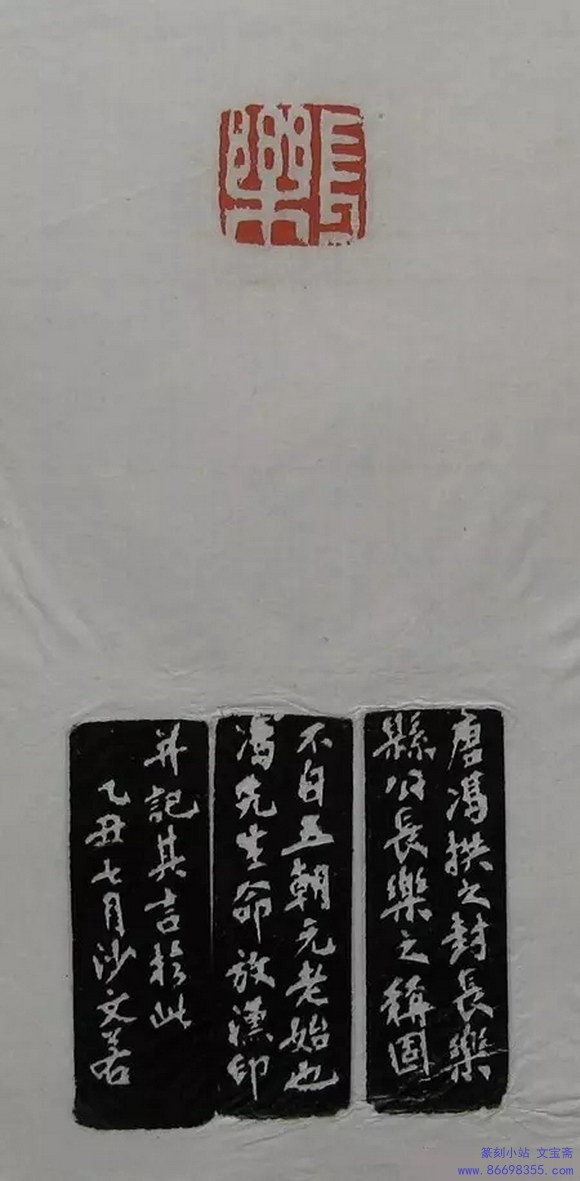 長樂
唐馮拱之封長樂
縣公長樂之稱固
不自五朝元老始也
馮先生命放漢印
并記其言於此
乙丑七月沙文若
篆刻小站 文宝斋
www.86698355.com